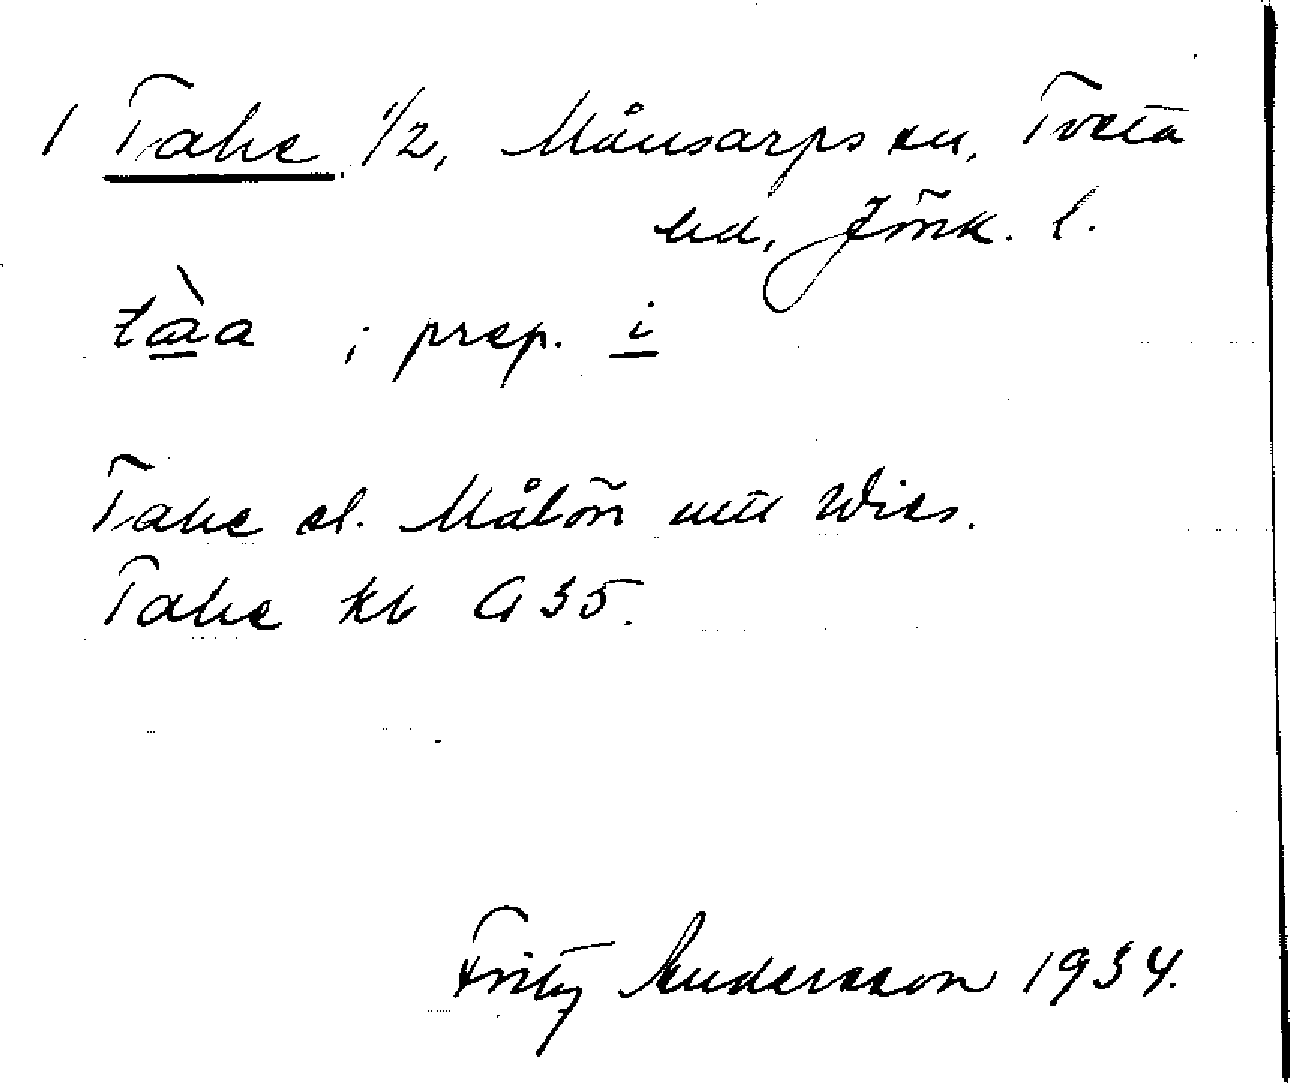 1 Tahe 1/2, Månsarps sn, Tveta
hd, Jönk. l.
tàa ; prep. i
Tahe el. Målön utt Wies.
Tahe kb G35.
Fritz Andersson 1934.